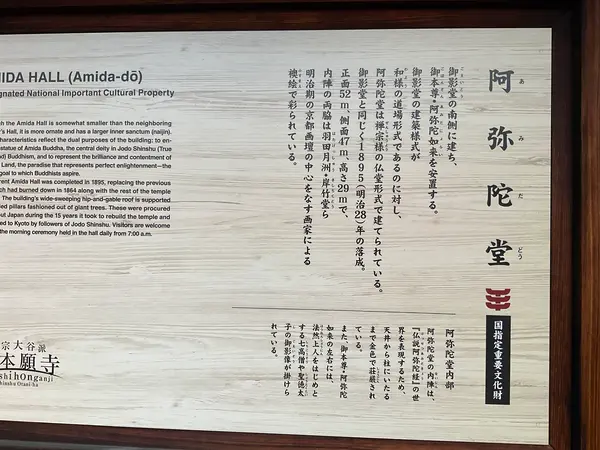 阿弥陀堂
あみだどう
国指定重要文化財
御影堂の南側に建ち、
御本尊・阿弥陀如来を安置する。
御影堂の建築様式が
和様の道場形式であるのに対し、
阿弥陀堂は禅宗様の仏堂形式で建てられている。
御影堂と同じく1895(明治28)年の落成。
正面52m、側面47m、高さ29mで、
内陣の両脇は羽田月洲・岸竹堂ら
明治期の京都画壇の中心をなす画家による
襖絵で彩られている。
阿弥陀堂内部
阿弥陀堂の内陣は、
『仏説阿弥陀経』の世
界を表現するため、
天井から柱にいたる
まで金色で荘厳され
ている。
また、御本尊・阿弥陀
如来の左右には、
法然上人をはじめと
する七高僧や聖徳太
子の御影像が掛けら
れている。
IDA HALL (Amida-dō)
gnated National Important Cultural Property
h the Amida Hall is somewhat smaller than the neighboring
r's Hall, it is more ornate and has a larger inner sanctum (naijin).
haracteristics reflect the dual purposes of the building: to en-
statue of Amida Buddha, the central deity in Jodo Shinshu (True
nd) Buddhism, and to represent the brilliance and contentment of
Land, the paradise that represents perfect enlightenment—the
goal to which Buddhists aspire.
rent Amida Hall was completed in 1895, replacing the previous
ich had burned down in 1864 along with the rest of the temple
The building's wide-sweeping hip-and-gable roof is supported
led pillars fashioned out of giant trees. These were procured
out Japan during the 15 years it took to rebuild the temple and
ted to Kyoto by followers of Jodo Shinshu. Visitors are welcome
the morning ceremony held in the hall daily from 7:00 a.m.
宗大谷派
本願寺
shihonganji
hinshu Otani-ha